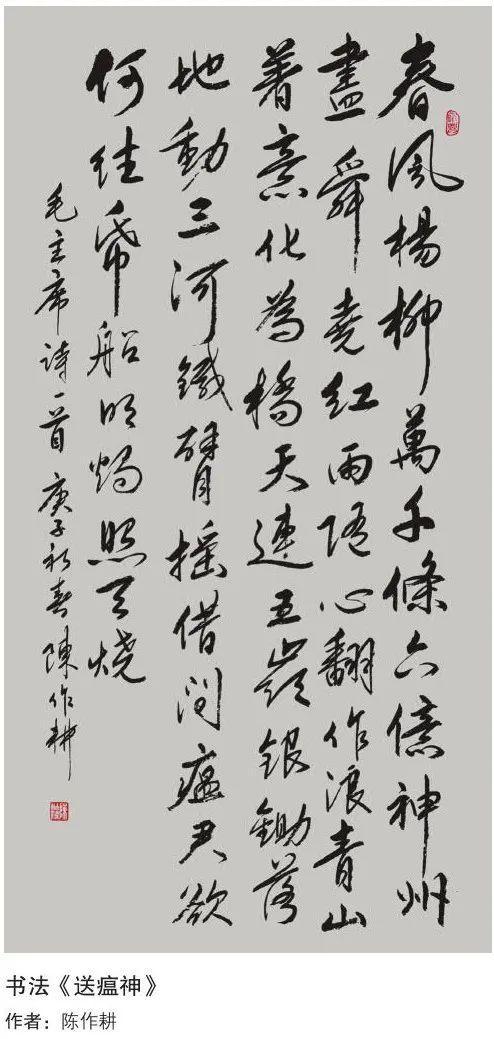 春風楊柳萬千條六億神州
盡舜堯紅雨隨心翻作浪青山
着意化為橋天連五嶺銀鋤落
地動三河鐵臂搖借問瘟君欲
何往帋船明燭照天燒
毛主席詩一首庚子初春陳作耕
书法《送瘟神》
作者：陈作耕